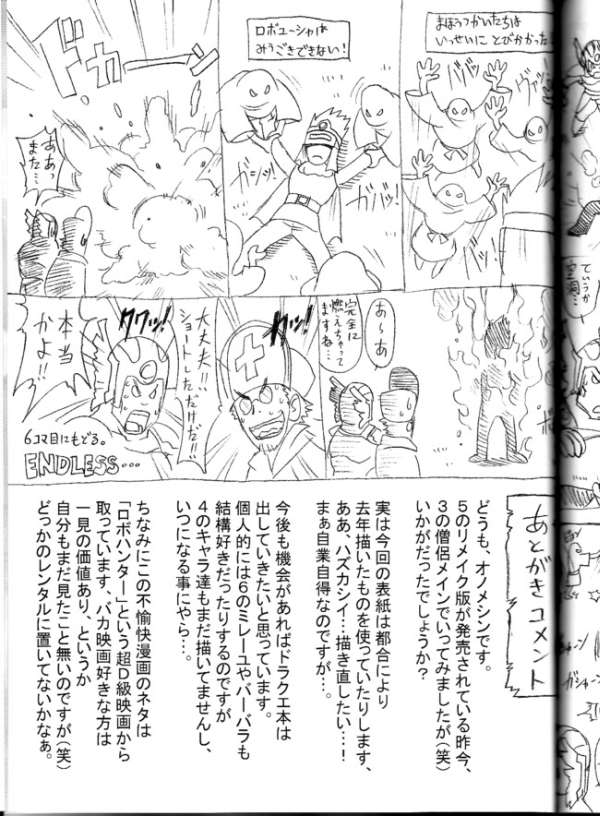 まほうつかいたちは
いっせいに とびかかった!
ロボユーシャは
みうごきできない!
ガシッ!
ガバッ!
ドカーン
ああっ
また…
あ〜あ
完全に
燃えちゃって
ますね…
大丈夫!!
ショートしただけだ!!
クワッ!
クワッ!
本当
かよ!!
6コマ目にもどる。
ENDLESS…
ていうか
あとがきコメント
どうも、オノメシンです。
5のリメイク版が発売されている昨今、
3の僧侶メインでいってみましたが(笑)
いかがだったでしょうか?
実は今回の表紙は都合により
去年描いたものを使っていたりします、
ああ、ハズカシイ…描き直したい…!
まぁ自業自得なのですが…。
今後も機会があればドラクエ本は
出していきたいと思っています。
個人的には6のミレーユやバーバラも
結構好きだったりするのですが
4のキャラ達もまだ描いてませんし、
いつになる事にやら…。
ちなみにこの不愉快漫画のネタは
「ロボハンター」という超D級映画から
取っています、バカ映画好きな方は
一見の価値あり、というか
自分もまだ見たこと無いのですが(笑)
どっかのレンタルに置いてないかなぁ。